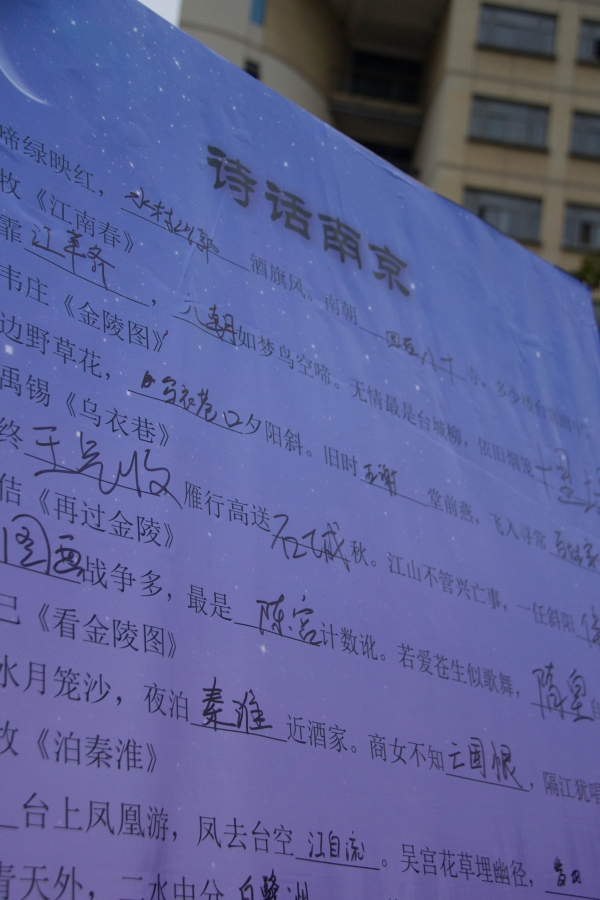 诗话南京
啼绿映红，水村山郭酒旗风。南朝四百八十寺，多少楼台烟雨中。
牧《江南春》
霏江草齐，六朝如梦鸟空啼。无情最是台城柳，依旧烟笼十里堤
韦庄《金陵图》
边野草花，乌衣巷口夕阳斜。旧时王谢堂前燕，飞入寻常百姓家
禹锡《乌衣巷》
终王气收雁行高送石城秋。江山不管兴亡事，一任斜阳
佶《再过金陵》
图画战争多，最是陈宫计数讹。若爱苍生似歌舞，隋皇自
己《看金陵图》
水月笼沙，夜泊秦淮近酒家。商女不知亡国恨，隔江犹唱
牧《泊秦淮》
台上凤凰游，凤去台空江自流。吴宫花草埋幽径，
青天外，二水中分白鹭洲